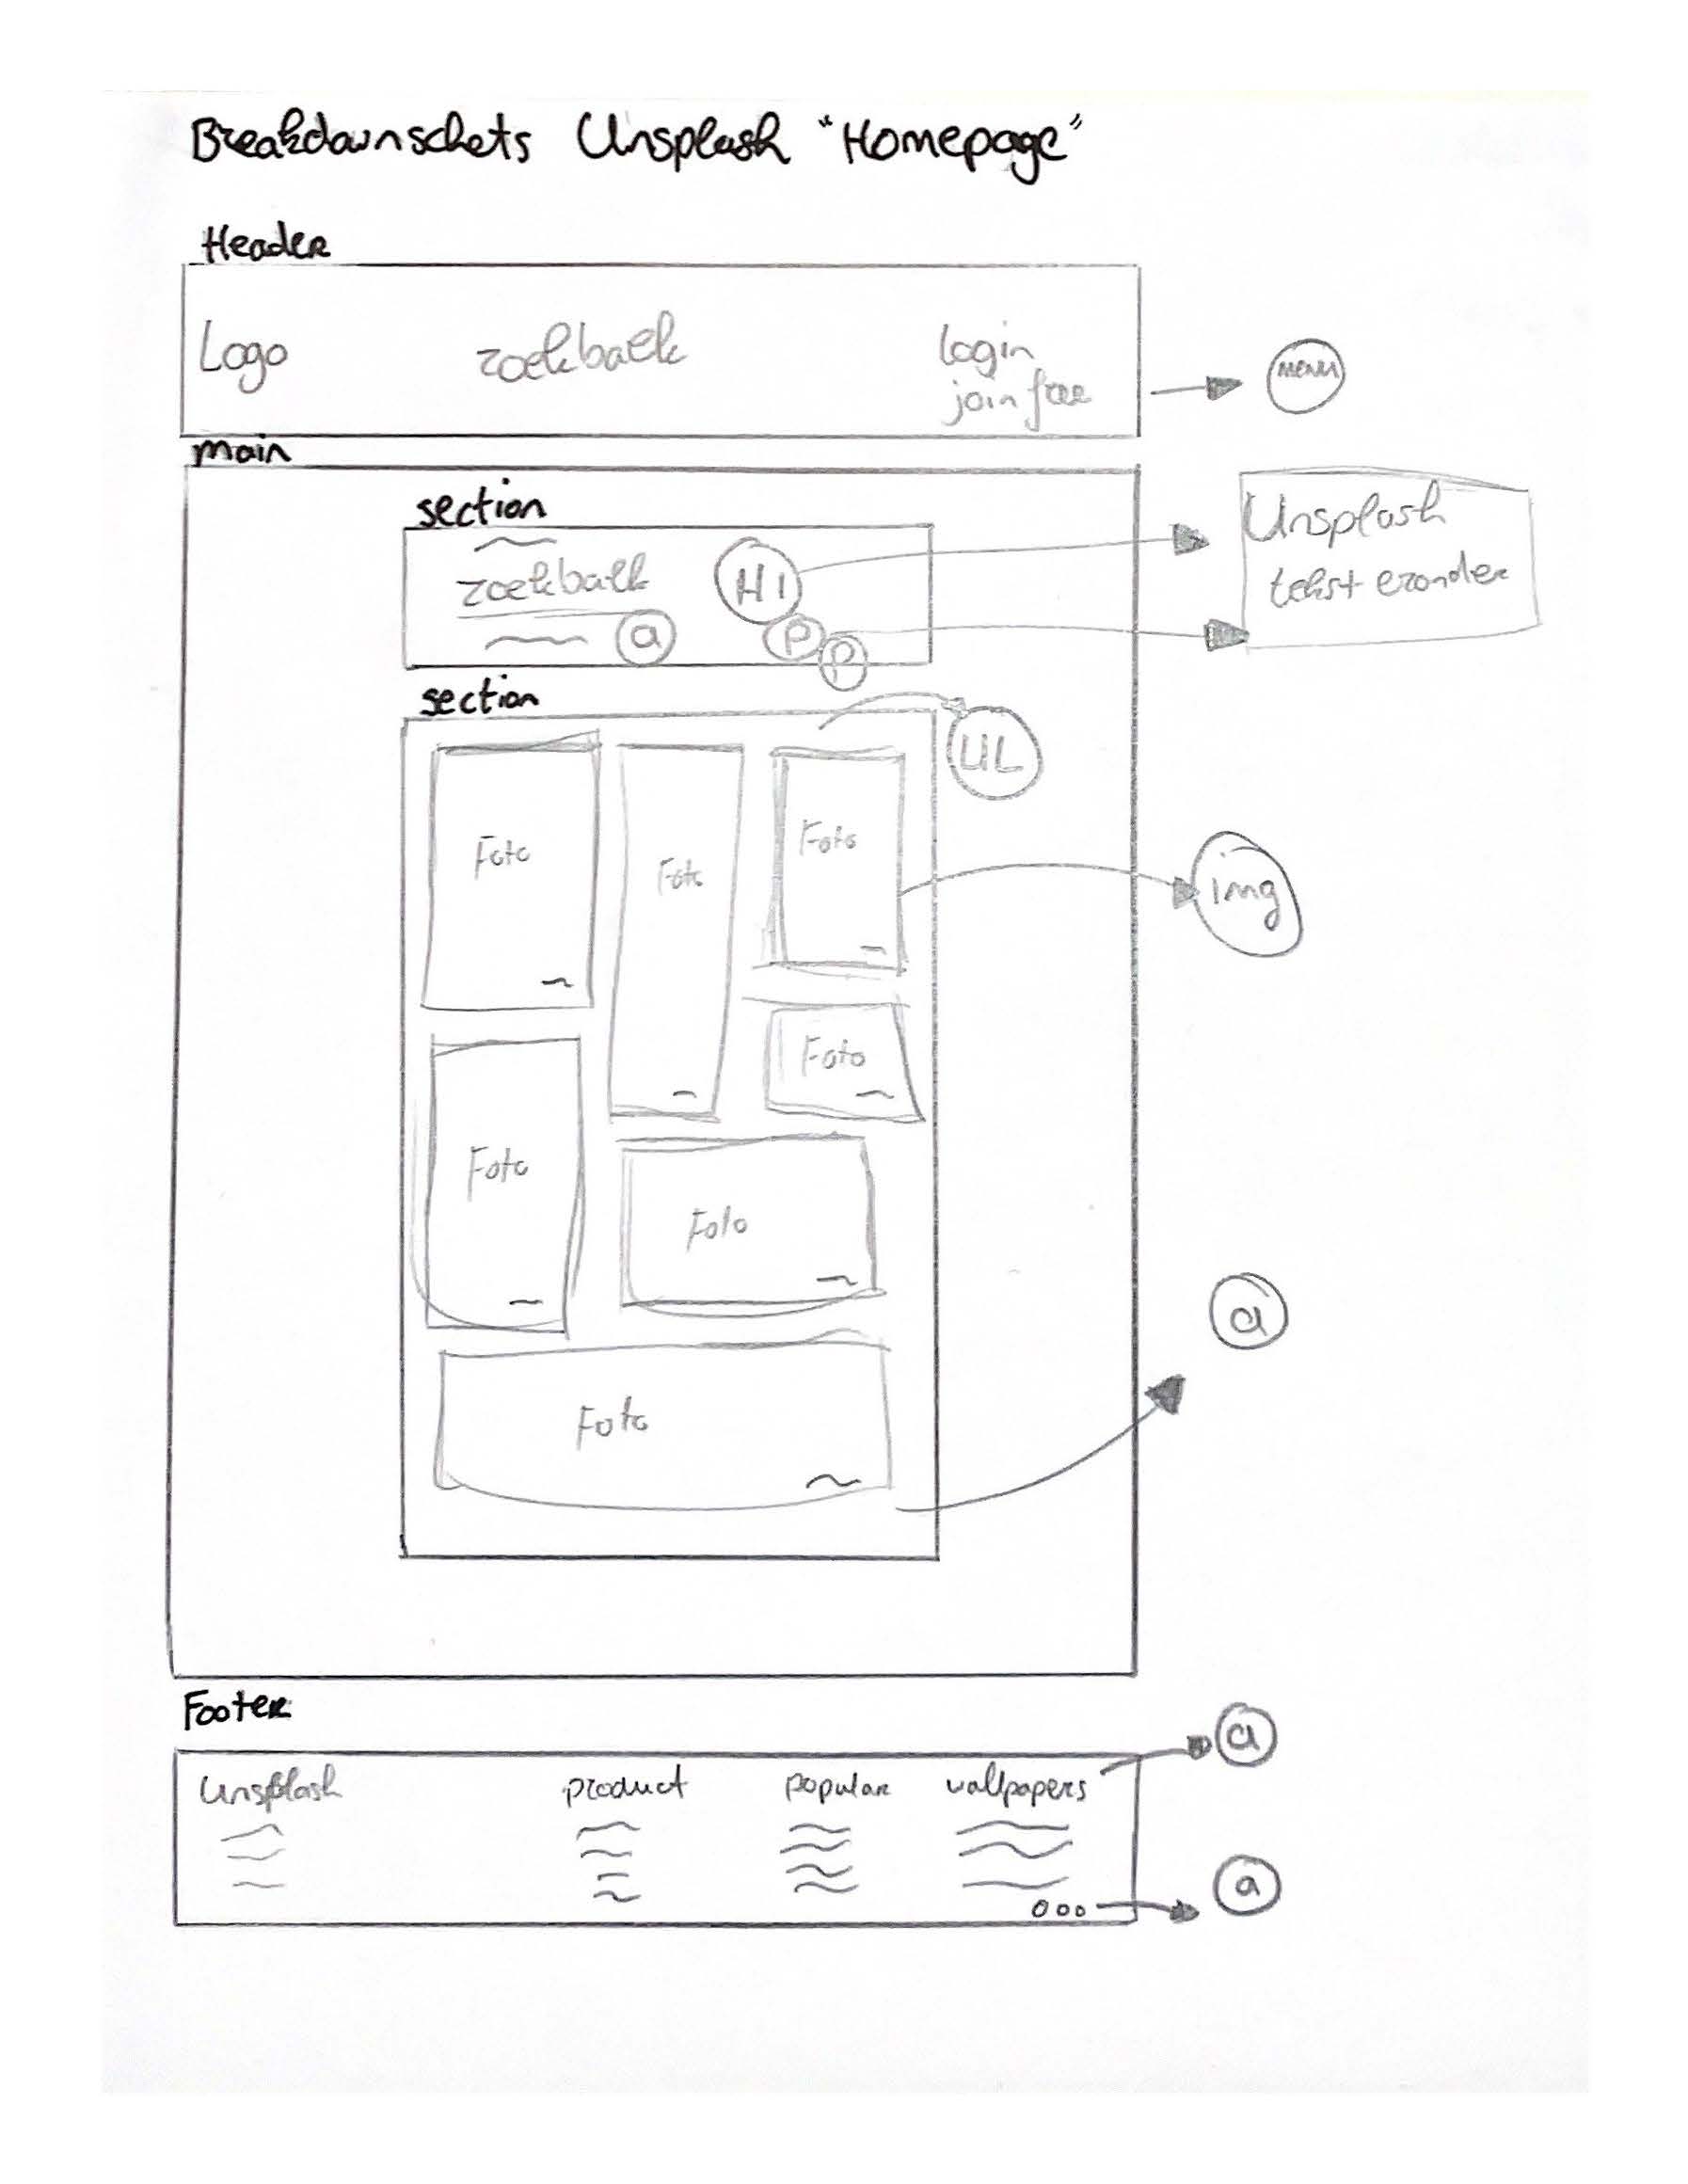 Breakdownschets Unsplash "Homepage"
Header
Logo
zoekbalk
login
join free
menu
main
section
zoekbalk
H1
a
P
P
Unsplash
tekst eronder
section
UL
Foto
Foto
Foto
img
Foto
Foto
Foto
a
Foto
Footer
a
Unsplash
product
popular
wallpapers
a